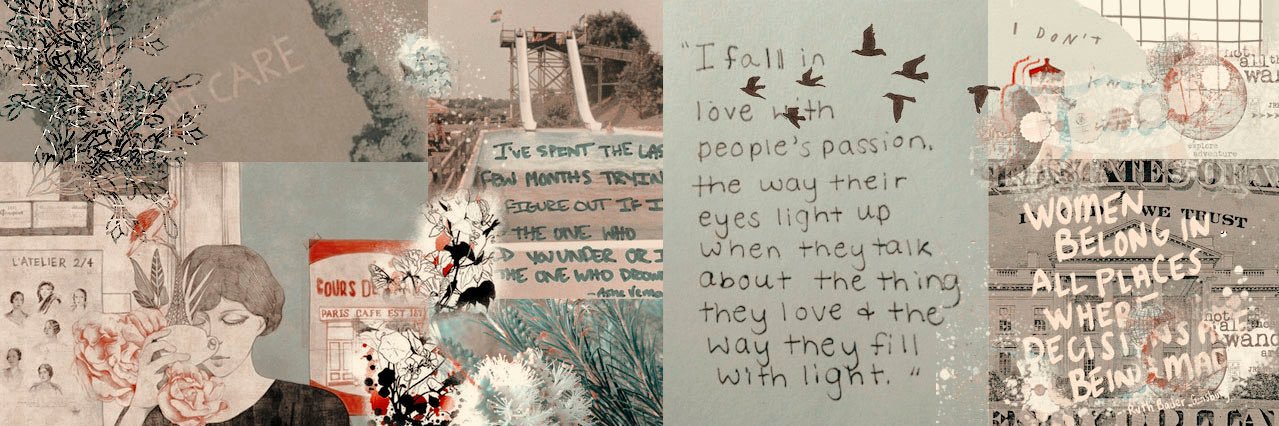 CARE
I'VE SPENT THE LAS
FEW MONTHS TRYIN
FIGURE OUT IF I
THE ONE WHO
D YOU UNDER OR I
THE ONE WHO DROW
"I fall in
love with
people's passion.
the way their
eyes light up
when they talk
about the thing
they love & the
way they fill
with light."
I DON'T
not
all tha
wand
explore
adventure
ATES OF A
WE TRUST
WOMEN
BELONG IN
ALL PLACES
WHER
DECISI NS A E
BEIN MAD
Ruth Bader Ginsburg
not
all tho
wand
ar
L'ATELIER 2/4
COURS DE
PARIS CAFE EST 18